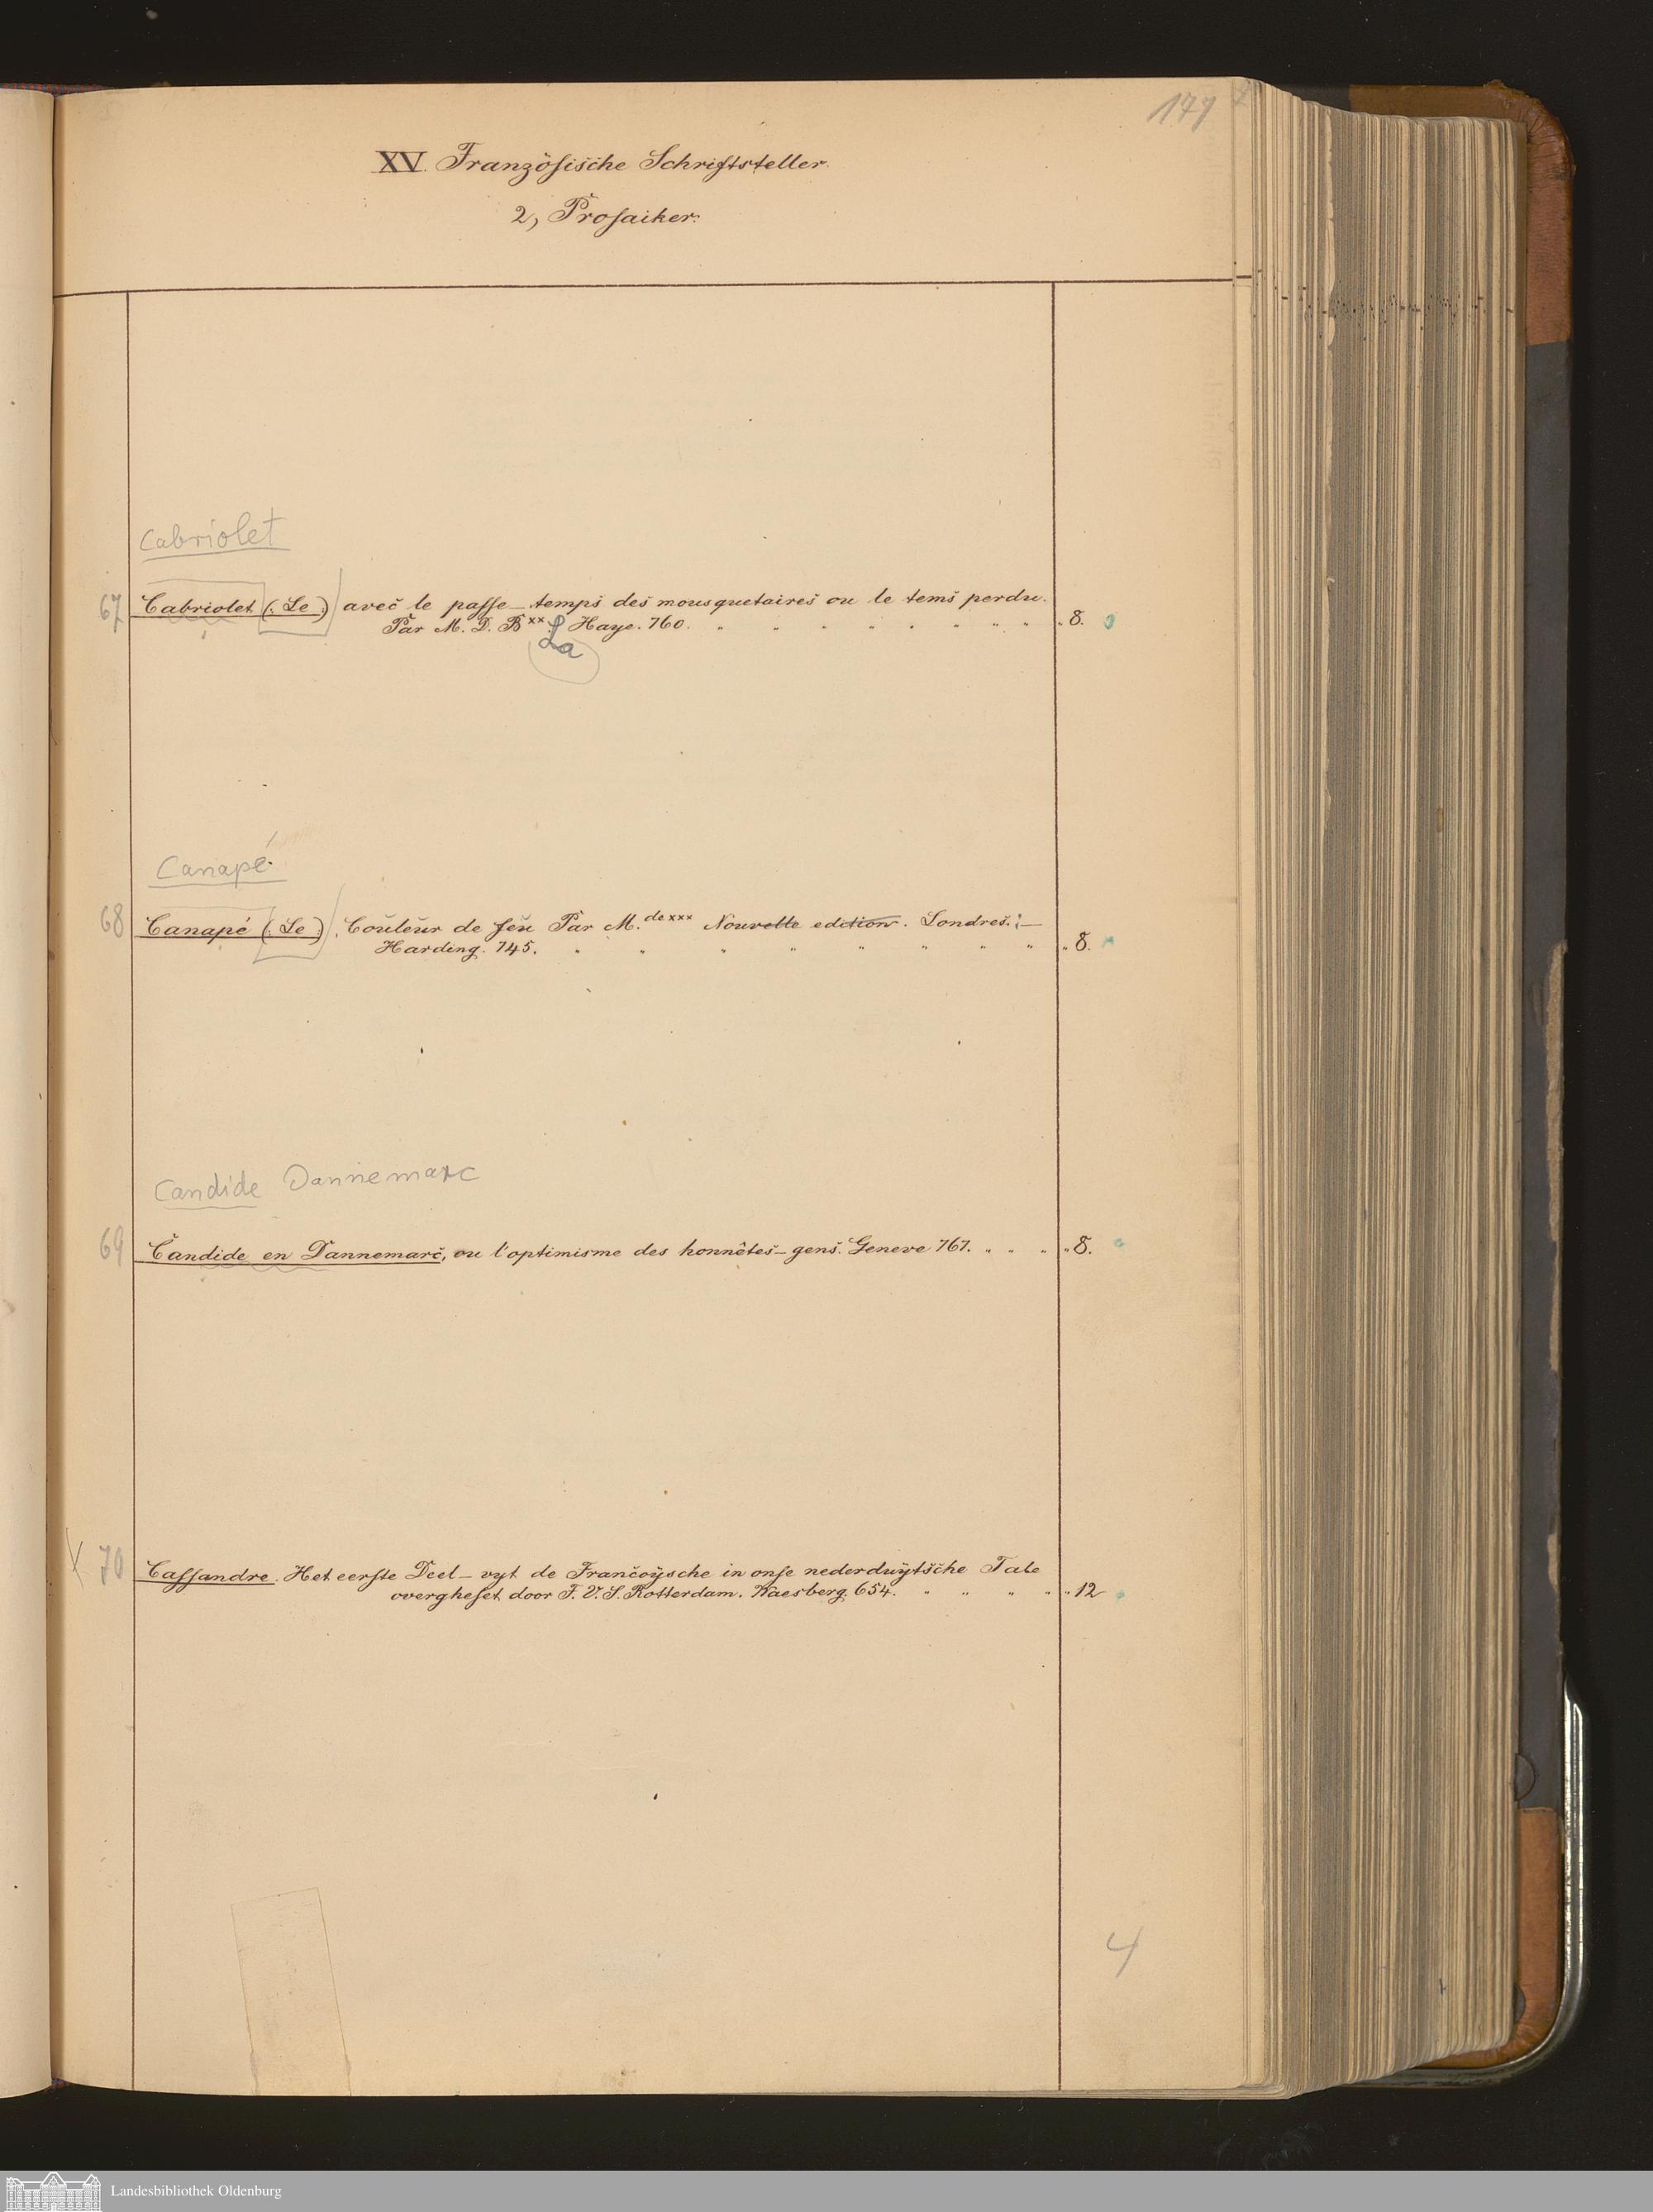 177
XV. Französische Schriftsteller.
2, Prosaiker.
Cabriolet
67 Cabriolet (: Le :) avec le passe-temps des mousquetaires ou le tems perdu.
Par M. D. B xx. Haye. 760. 8.
La
Canapé
68 Canapé (: Le :) Couleur de feu Par M. de xxx Nouvelle edition. Londres. :-
Harding. 745. 8.
Candide Dannemarc
69 Candide en Dannemarc, ou l'optimisme des honnêtes-gens. Geneve 767. 8.
70 Cassandre. Het eerste Deel- vyt de Françoÿsche in onse nederduÿtsche Tale
overgheset door F. V. S. Rotterdam. Waesberg. 654. 12
4
Landesbibliothek Oldenburg